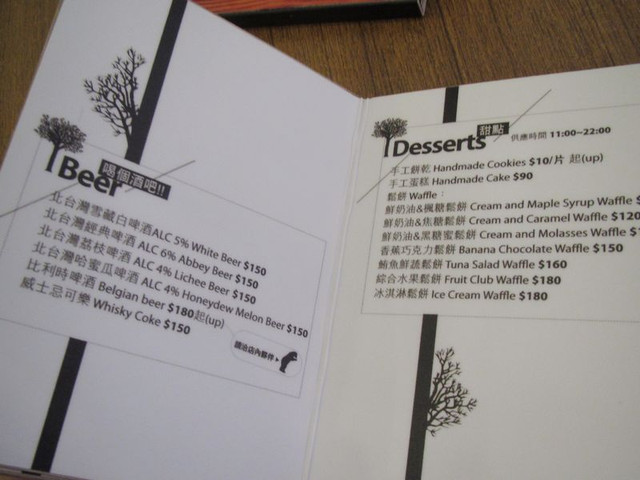 喝個酒吧!!
Beer
北台灣雪藏白啤酒ALC 5% White Beer $150
北台灣經典啤酒 ALC 6% Abbey Beer $150
北台灣荔枝啤酒 ALC 4% Lichee Beer $150
北台灣哈蜜瓜啤酒 ALC 4% Honeydew Melon Beer $150
比利時啤酒 Belgian beer $180起(up)
威士忌可樂 Whisky Coke $150
請洽店內夥伴
甜點
Desserts 供應時間 11:00~22:00
手工餅乾 Handmade Cookies $10/片 起(up)
手工蛋糕 Handmade Cake $90
鬆餅 Waffle：
鮮奶油&楓糖鬆餅 Cream and Maple Syrup Waffle
鮮奶油&焦糖鬆餅 Cream and Caramel Waffle $120
鮮奶油&黑糖蜜鬆餅 Cream and Molasses Waffle
香蕉巧克力鬆餅 Banana Chocolate Waffle $150
鮪魚鮮蔬鬆餅 Tuna Salad Waffle $160
綜合水果鬆餅 Fruit Club Waffle $180
冰淇淋鬆餅 Ice Cream Waffle $180